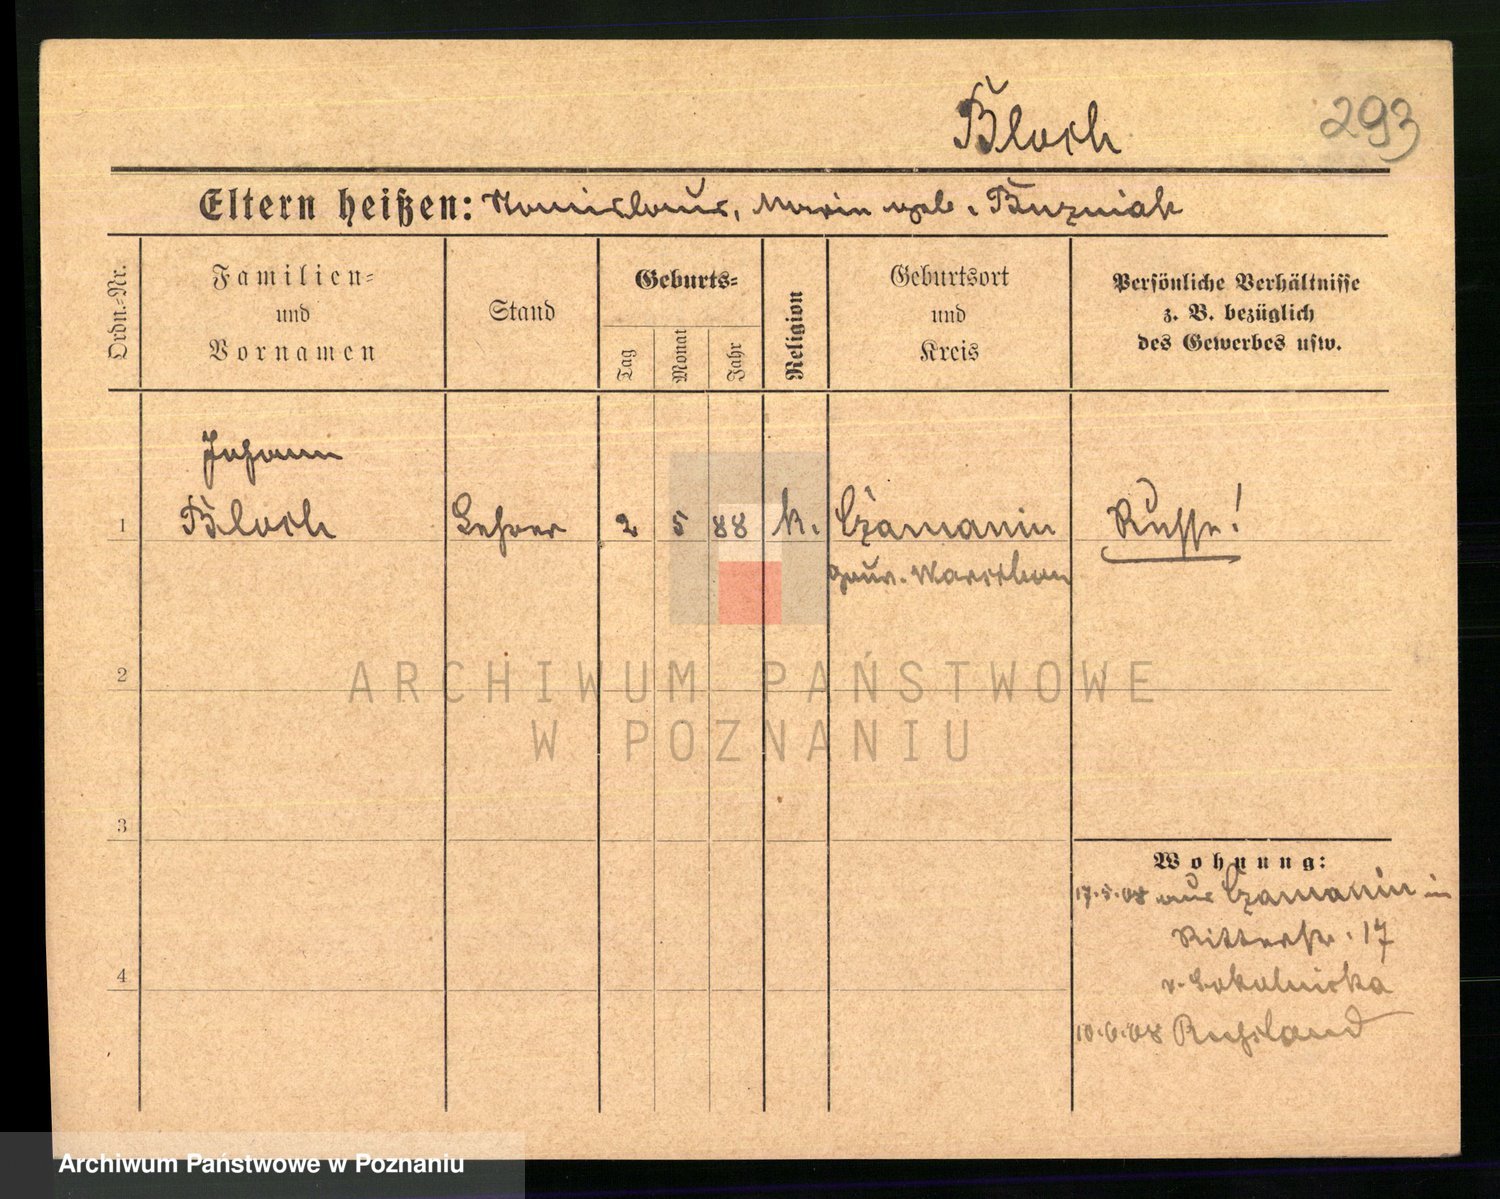 Bloch
293
Eltern heißen: Stanislaus, Maria geb. Buzniak
Ordn.-Nr.
Familien-
und
Vornamen
Stand
Geburts-
Tag
Monat
Jahr
Religion
Geburtsort
und
Kreis
Persönliche Verhältnisse
z. B. bezüglich
des Gewerbes usw.
Johann
1 Bloch Lehrer 2 5 88 k. Czamanin Russe!
Gouv. Warschau
2
ARCHIWUM PAŃSTWOWE
W POZNANIU
3
Wohnung:
17.5.08 aus Czamanin in
Ritterstr. 17
v. Sokolnicka
4
10.6.08 Russland
Archiwum Państwowe w Poznaniu